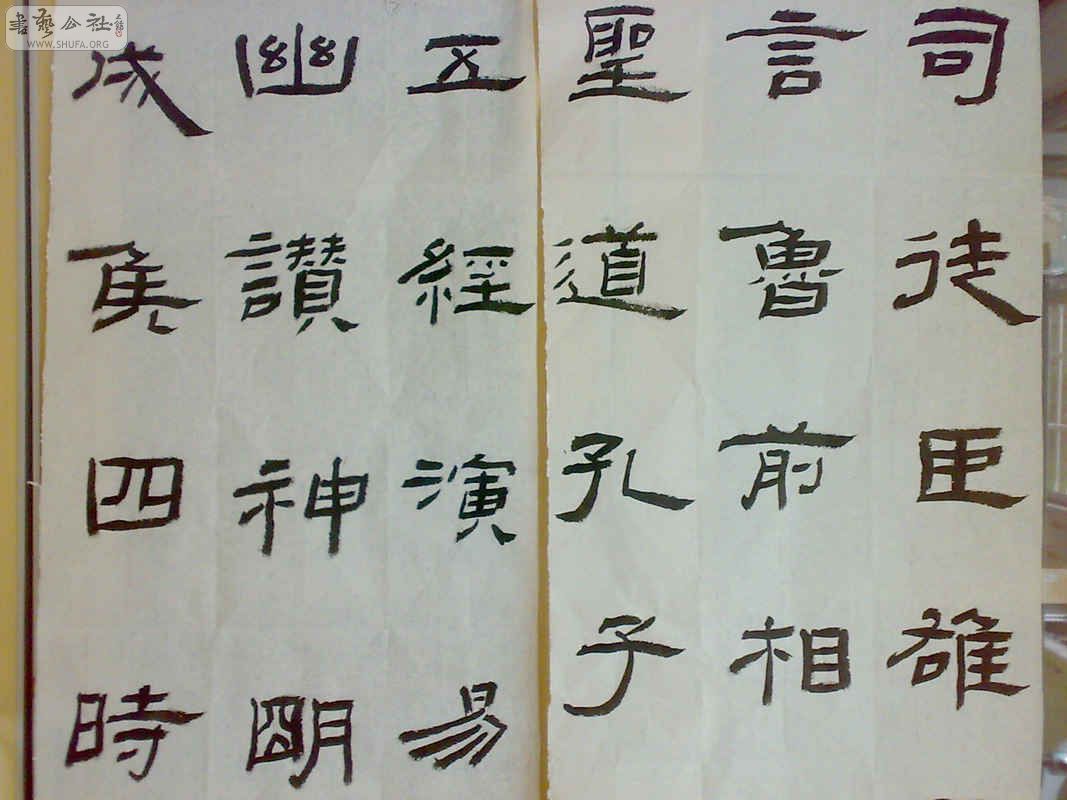 司徒臣雄
言魯前相
聖道孔子
五經演易
幽讚神明
成矦四時
書藝公社
WWW.SHUFA.ORG